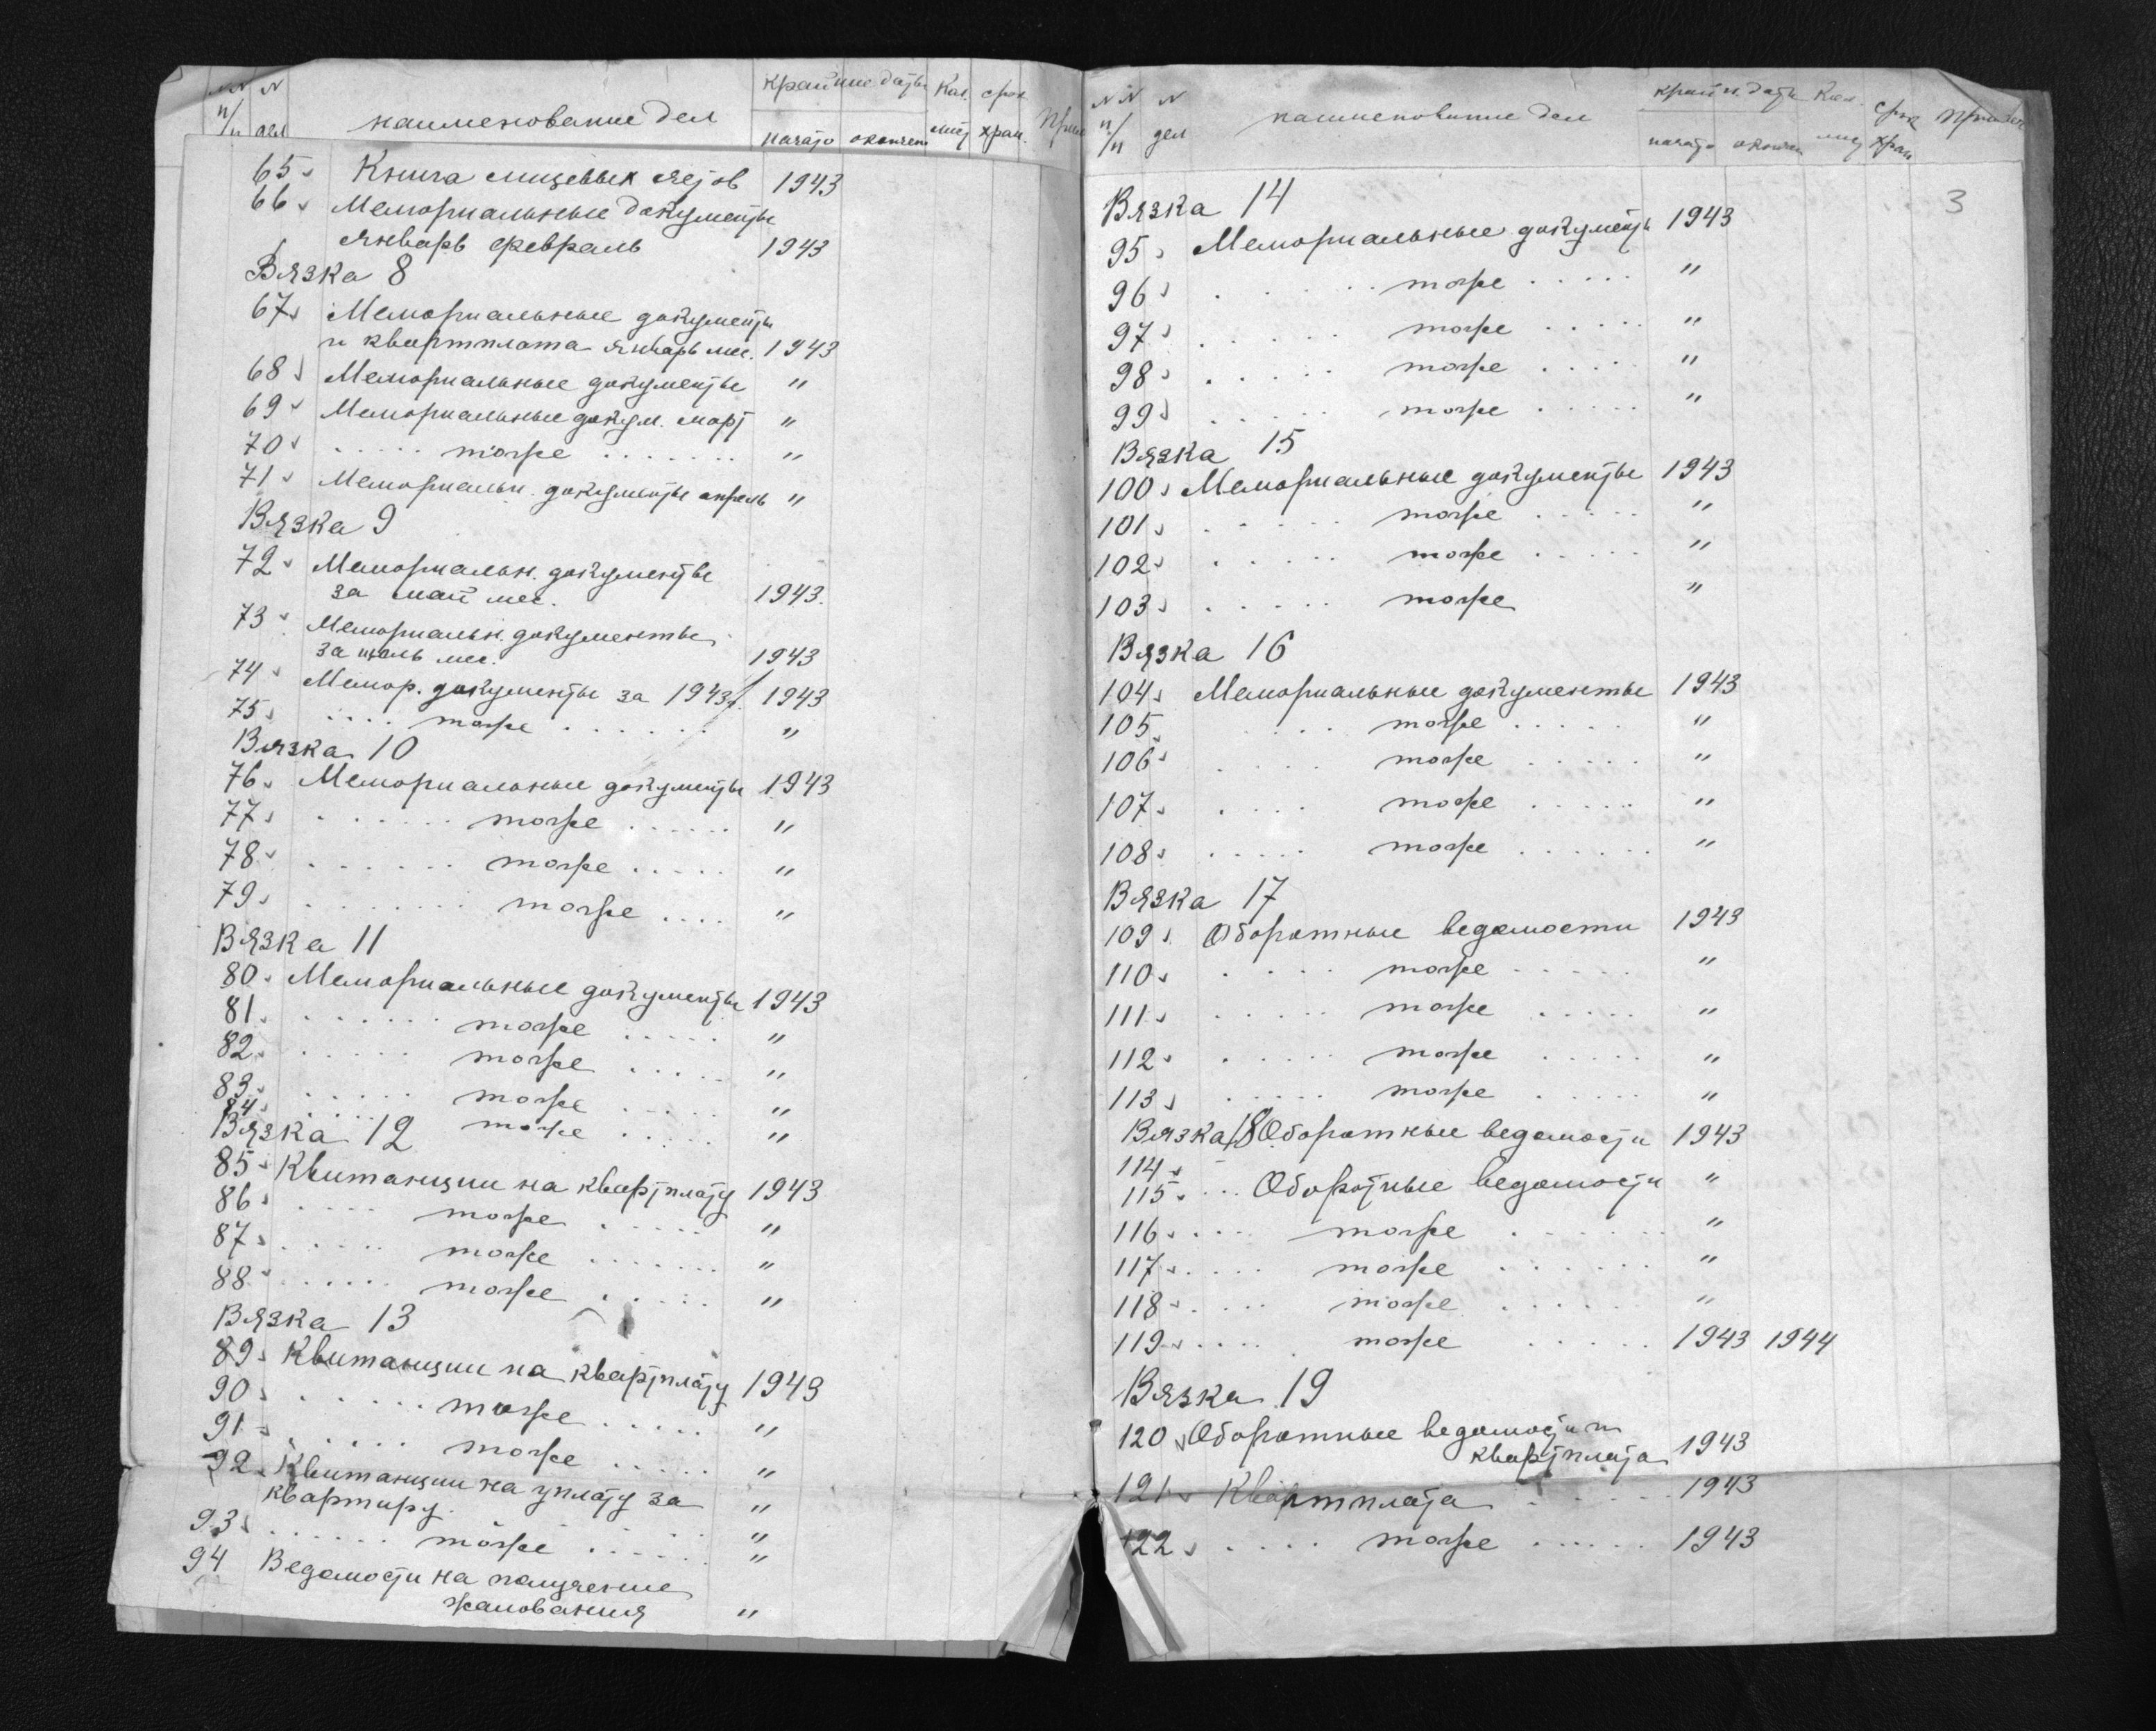 NN п/п N дел наименование дел крайние даты Кол. лист срок хран.
начало окончен
65 Книга лицевых счетов 1943
66 Мемориальные документы
январь февраль 1943
Вязка 8
67 Мемориальные документы
и квартплата январь мес. 1943
68 Мемориальные документы "
69 Мемориальные докум. март "
70 ..... тоже ....... "
71 Мемориальн. документы апрель "
Вязка 9
72 Мемориальн. документы
за май мес. 1943.
73 Мемориальн. документы
за июль мес. 1943
74 Мемор. документы за 1943 г. 1943
75 .... тоже ...... "
Вязка 10
76 Мемориальные документы 1943
77 ...... тоже ...... "
78 ...... тоже ..... "
79 ....... тоже .... "
Вязка 11
80 Мемориальные документы 1943
81 ...... тоже ..... "
82 ..... тоже ..... "
83 ..... тоже ..... "
84 .... тоже ..... "
Вязка 12
85 Квитанции на квартплату 1943
86 .... тоже ...... "
87 ..... тоже ....... "
88 ..... тоже ..... "
Вязка 13
89 Квитанции на квартплату 1943
90 ...... тоже ..... "
91 ..... тоже ..... "
92 Квитанции на уплату за
квартиру. "
93 ..... тоже ...... "
"
94 Ведомости на получение
жалования "
NN п/п N дел наименование дел крайн. даты Кол. лист срок хран
начало окончан
3
Вязка 14
95 Мемориальные документы 1943
96 ..... тоже ..... "
97 ..... тоже ..... "
98 ..... тоже ..... "
99 ..... тоже ..... "
Вязка 15
100 Мемориальные документы 1943
101 ..... тоже ..... "
102 ..... тоже ..... "
103 ..... тоже "
Вязка 16
104 Мемориальные документы 1943
105 .... тоже ..... "
106 .... тоже ..... "
107 .... тоже ..... "
108 ..... тоже ...... "
Вязка 17
109 Оборотные ведомости 1943
110 .... тоже ..... "
111 ..... тоже ..... "
112 ..... тоже ..... "
113 ..... тоже ..... "
Вязка 18 Оборотные ведомости 1943
114
115 ... Оборотные ведомости "
116 .... тоже ...... "
117 .... тоже ...... "
118 .... тоже ...... "
119 .... тоже ..... 1943 1944
Вязка 19
120 Оборотные ведомости и
квартплата 1943
121 Квартплата ...... 1943
122 .... тоже ..... 1943